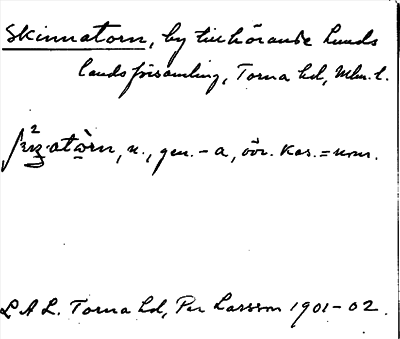 Skinnatorn, by tillhörande Lunds
landsförsamling, Torna hd, Mlm. l.
n., gen. -a, övr. kas. = nom.
L A L. Torna hd, Per Larsson 1901-02.